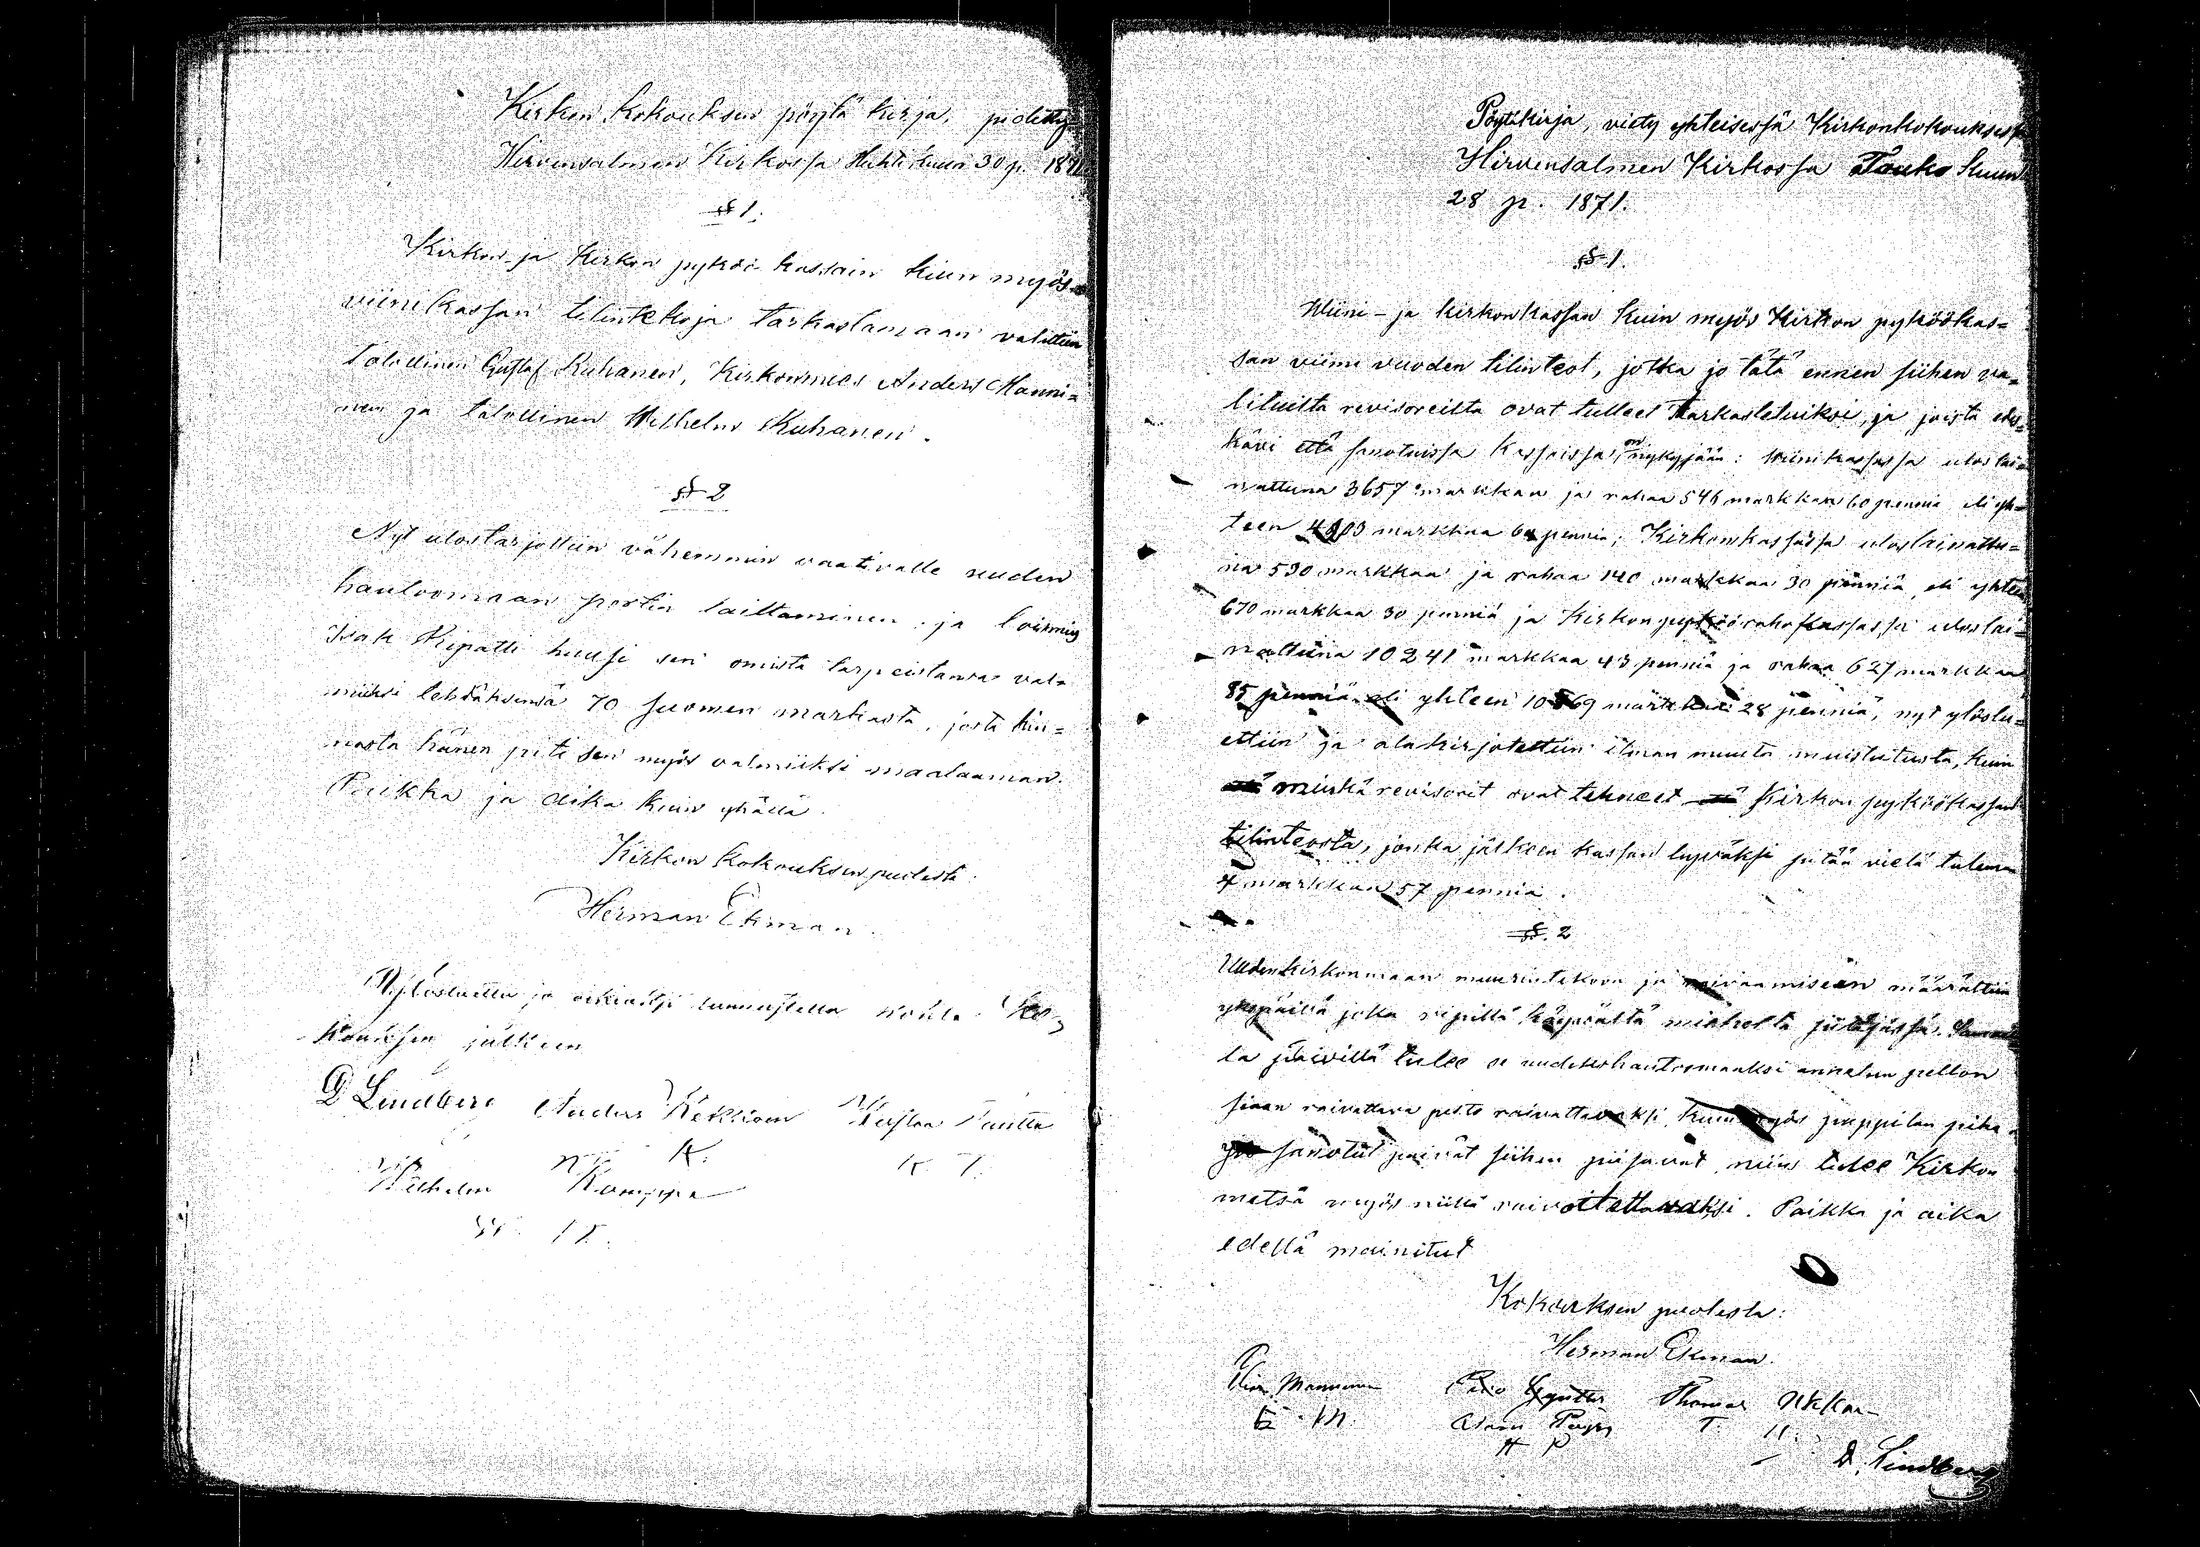 Kirkon Kokouksen pöytä kirja, pidetty
Hirvensalmen Kirkossa Huhti kuun 30 p. 1871
§ 1.
Kirkon- ja Kirkon pyköö kassain kuin myös
viinikassan tilintekoja tarkastamaan valittiin
talollinen Gustaf Kuhanen, Kirkonmies Anders Manni=
nen ja talollinen Wilhelm Kuhanen.
§ 2
Nyt ulostarjottiin vähemmin vaativalle uuden
hautoomaan portin laittaminen, ja Loismies
Isak Ripatti huusi sen omista tarpeistansa val=
miiksi tehdäksensä 70 Suomen markasta, josta hin=
nasta hänen piti sen myös valmiiksi maalaaman.
Paikka ja aika kuin yhällä.
Kirkon Kokouksen puolesta.
Herman Ekman.
Ylösluettu ja oikiaksi tunnustettu kohta Ko=
kouksen jälkeen
D Lindberg Anders Kekkonen Kustaa
K. K T.
Wilhelm Kamppa
Pöytäkirja, viety yhteisessä Kirkonkokouksessa
Hirvensalmen Kirkossa Touko Kuun
28 p. 1871.
§ 1.
Wiini- ja kirkonkassan kuin myös Kirkon pyköökas=
san viime vuoden tilinteot, jotka jo tätä ennen siihen va=
lituilta revisoreilta ovat tulleet tarkastetuiksi, ja joista edes=
kävi että sanotuissa kassoissa on nykyjään: Wiinikassassa uloslai=
nattuna 3657 markkaa ja rahaa 546 markkaa 60 penniä eli yh=
teen 4203 markkaa 60 penniä; Kirkonkassassa uloslainattu=
na 530 markkaa ja rahaa 140 markkaa 30 penniä, eli yhteen
670 markkaa 30 penniä ja Kirkon pyköörahakassassa uloslai=
nattuna 10241 markkaa 43 penniä ja rahaa 627 markkaa
85 penniä eli yhteen 10869 markkaa 28 penniä, nyt ylöslu=
ettiin ja alakirjotettiin ilman muuta muistutusta, kuin
minkä revisorit ovat tehneet Kirkon pyköökassan
tilinteosta, jonka jälkeen kassan hyväksi pitää vielä tuleman
4 markkaa 57 penniä.
§. 2
Uuden kirkonmaan muurintekoon ja raivaamiseen määrättiin
yksipäivä joka ripillä käyvältä mieheltä pitäjässä.
la päivillä tulee se uudeksi hautoomaaksi annetun pellon
siaan raivattava pelto raivattavaksi, kuin myös pappilan
sanotut päivät siihen piisaavat, niin tulee Kirkon
metsä myös niillä raivattettavaksi. Paikka ja aika
edellä mainitut
Kokouksen puolesta:
Herman Ekman.
Elias Manninen Thomas Ukkon-
E. M. Adam T. U.
A P
D. Lindberg